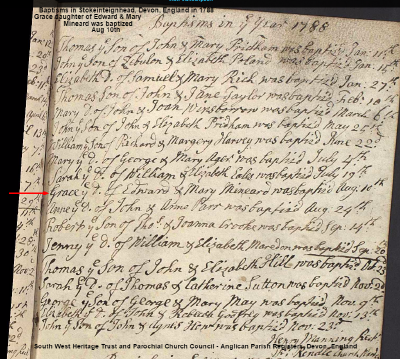 Baptisms in Stokeinteignhead, Devon, England in 1788
Grace daughter of Edward & Mary
Mineard was baptized
Aug 10th
Baptisms in yͤ Year 1788
Thomas yͤ Son of John & Mary Pridham was baptis'd Jan. 11th
John yͤ Son of Zebulon & Elizabeth Poland was baptis'd Jan. 15th
Elizabeth D. of Samuel & Mary Rich was baptis'd Jan. 27th
Thomas Son of John & Jane Taylor was baptis'd Feb. 10th
Mary D. of John & Joan Winsborrow was baptis'd March 6th
John yͤ Son of John & Elizabeth Pridham was baptis'd May 25th
William yͤ Son of Richard & Margery Harvey was baptis'd June 22d
Mary yͤ D. of George & Mary Ager was baptis'd July 4th
Sarah yͤ D. of William & Elizabeth was baptis'd July 19th
Grace yͤ D. of Edward & Mary Mineard was baptis'd Aug. 10th
Anne yͤ D. of John & Anne Parr was baptis'd Aug. 24th
Robert yͤ Son of Thos. & Joanna Crocker was baptis'd Sep. 14th
Jenny yͤ D. of William & Elizabeth Maredon was baptis'd Sep. 20
Thomas yͤ Son of John & Elizabeth Hill was baptis'd
Sarah yͤ D. of Thomas & Catherine Sutton was baptis'd Nov. 2d
George yͤ Son of George & Mary May was baptis'd Nov. 9th
Elizabeth yͤ D. of & Rebecca Godfrey was baptis'd Nov. 13th
John yͤ Son of John & Agnes was baptis'd Nov. 23d
Henry Manning Rect.
Thos. Rendle Church
South West Heritage Trust and Parochial Church Council - Anglican Parish Registers, Devon, England